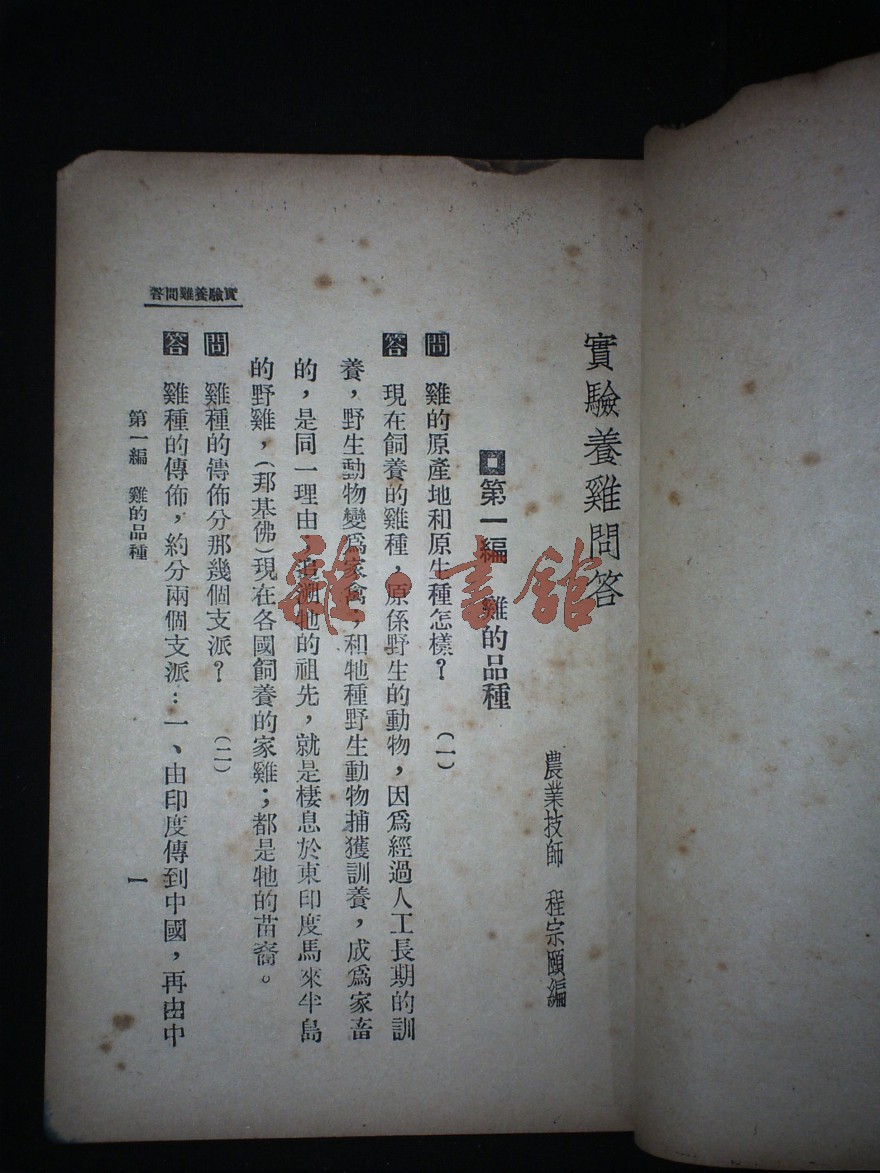 實驗養雞問答
農業技師 程宗頤編
第一編 雞的品種
問 雞的原產地和原生種怎樣？ （一）
答 現在飼養的雞種，原係野生的動物，因爲經過人工長期的訓
養，野生動物變爲家禽，和牠種野生動物捕獲訓養，成爲家畜
的，是同一理由，追溯牠的祖先，就是棲息於東印度馬來半島
的野雞，（邦基佛）現在各國飼養的家雞；都是牠的苗裔。
問 雞種的傳佈分那幾個支派？ （二）
答 雞種的傳佈，約分兩個支派：一、由印度傳到中國，再由中
實驗養雞問答
第一編 雞的品種
一
雜·書館